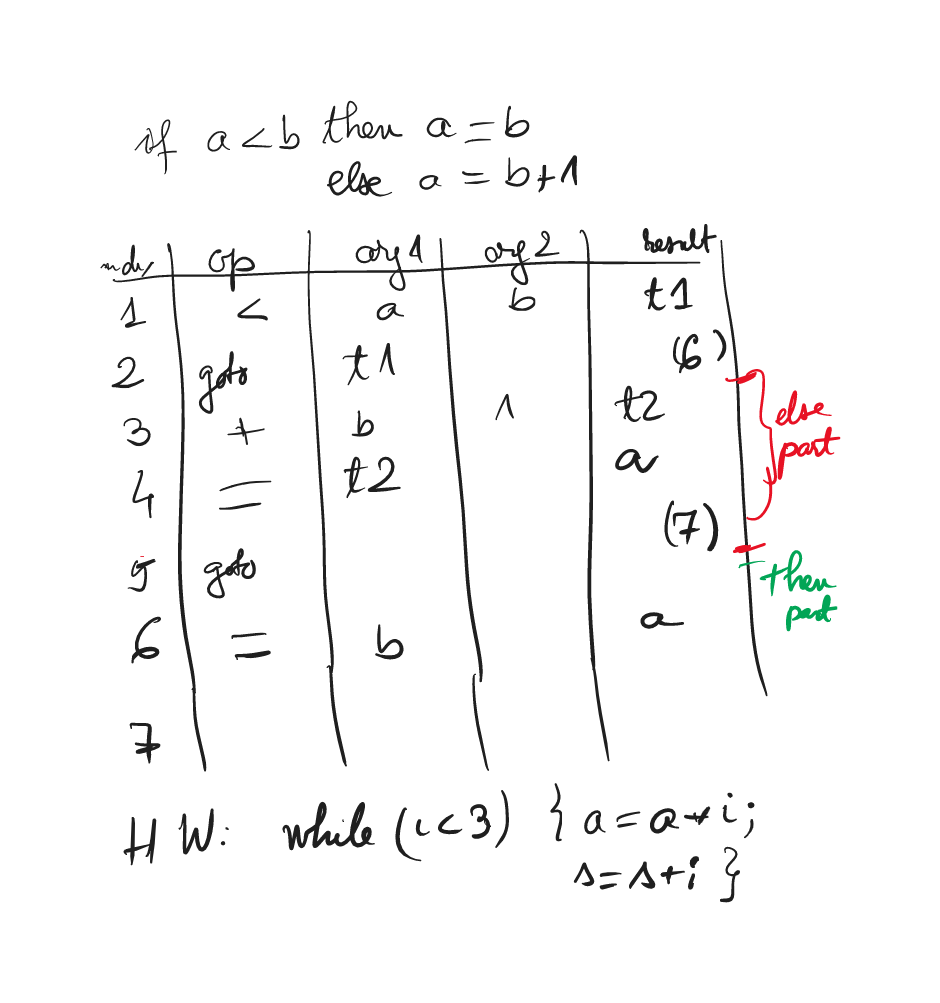 if a<b then a=b
else a = b+1
indx op arg1 arg2 result
1 < a b t1
2 goto t1 (6)
3 + b 1 t2
4 = t2 a
5 goto (7)
6 = b a
7
else
part
then
part
HW: while (i<3) { a=a+i;
s=s+i }